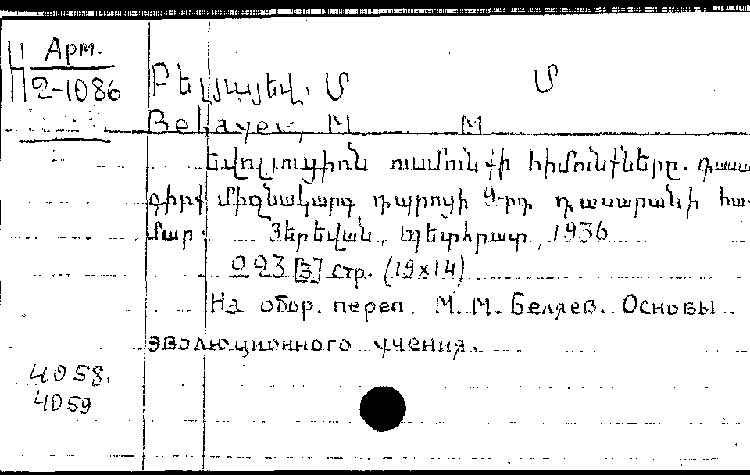 Арм.
П 2-1086
Բելյայեվ, Մ Մ
Belayev, M M
Եվոլուցիոն ուսմունքի հիմունքները. դաս
գիրք միջնակարգ դպրոցի 9-րդ դասարանի հա
մար: Յերեվան, Պետհրատ, 1936
223 [3] стр. (19x14)
На обор. переп. М. М. Беляев. Основы
эволюционного учения.
4058.
4059